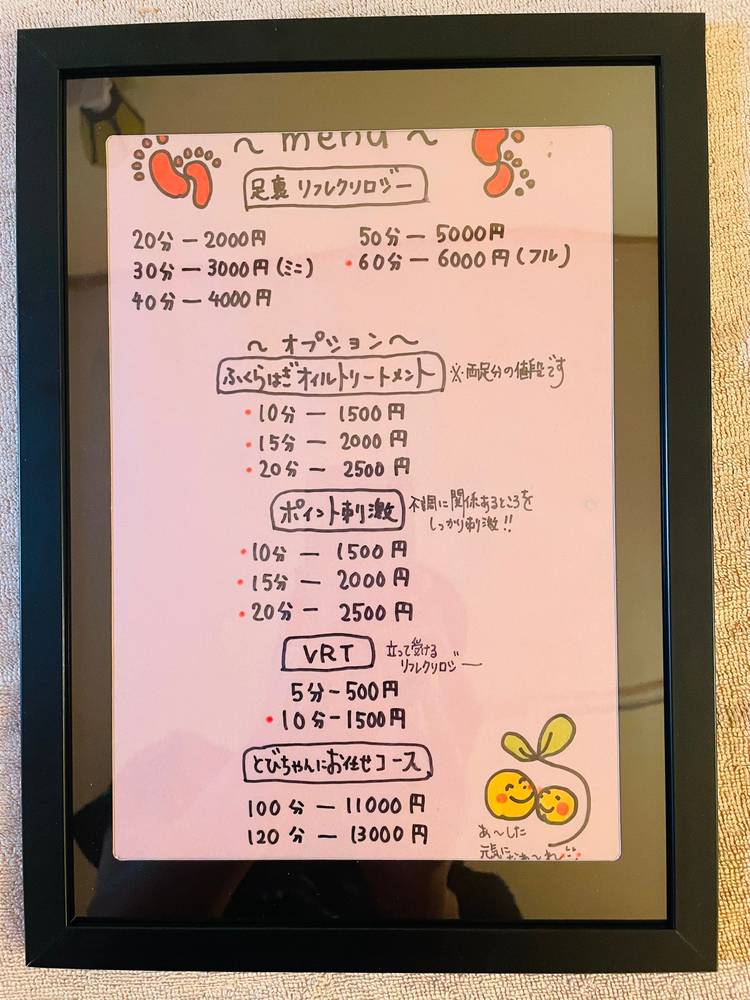 ~ menu ~
足裏 リフレクソロジー
20分 ー 2000円
30分 ー 3000円 (ミニ)
40分 ー 4000円
50分 ー 5000円
・60分 ー 6000円 (フル)
~ オプション ~
ふくらはぎオイルトリートメント ※両足分の値段です
・10分 ー 1500円
・15分 ー 2000円
・20分 ー 2500円
ポイント刺激 不調に関係あるところを
しっかり刺激!!
・10分 ー 1500円
・15分 ー 2000円
・20分 ー 2500円
VRT 立って受ける
リフレクソロジー
5分ー500円
・10分ー1500円
とびちゃんにお任せコース
100分 ー 11000円
120分 ー 13000円
あ〜した
元気に